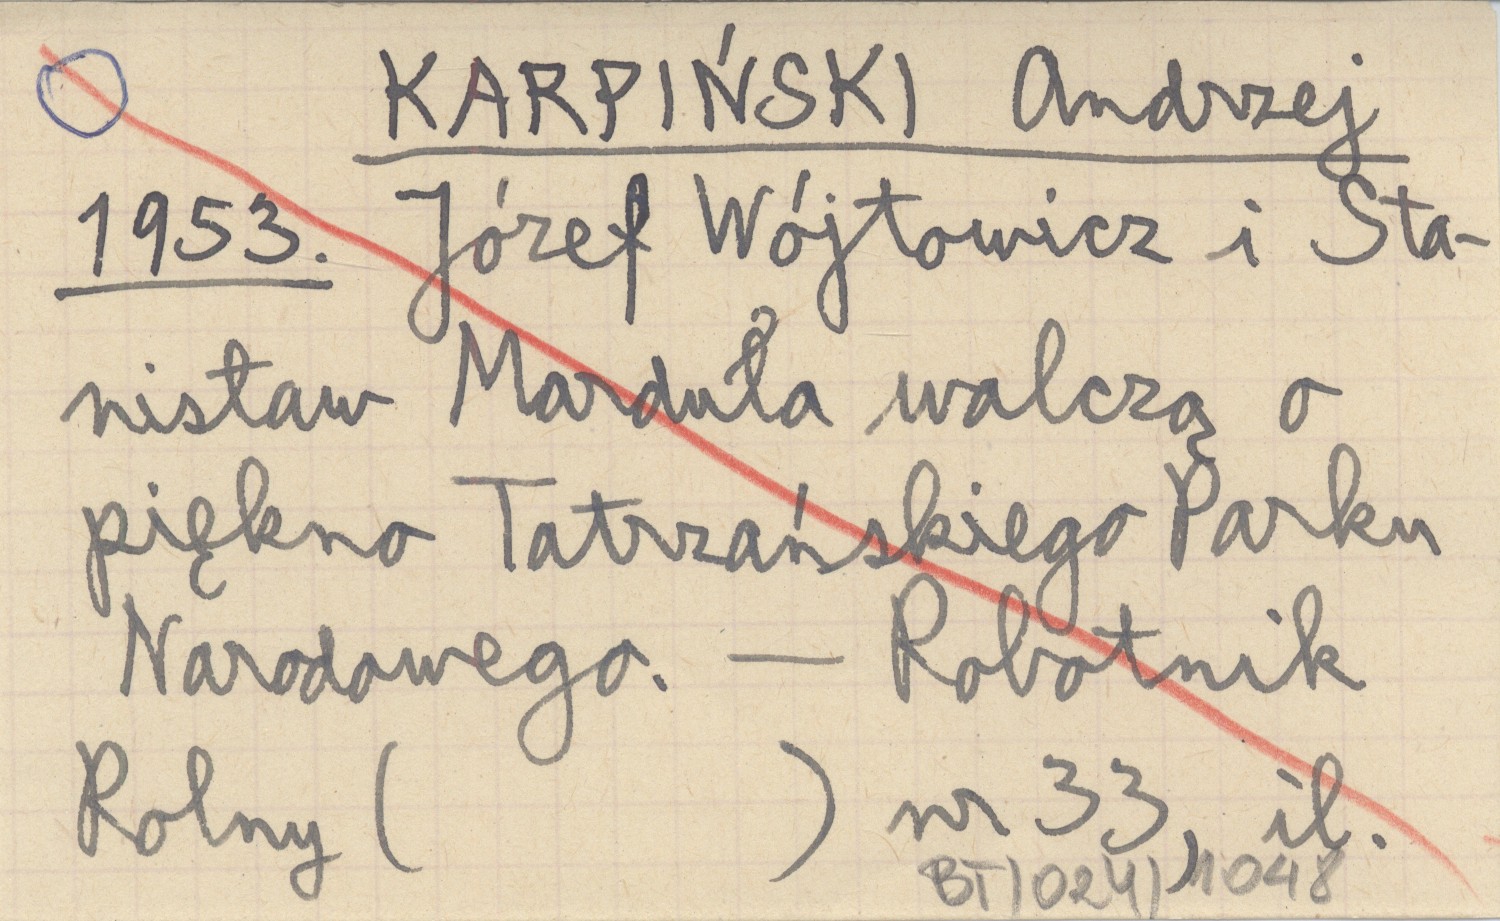 KARPIŃSKI Andrzej
1953. Józef Wójtowicz i Sta-
nisław Marduła walczą o
piękno Tatrzańskiego Parku
Narodowego. — Robotnik
Rolny ( ) nr 33, il.
BT/024/1048